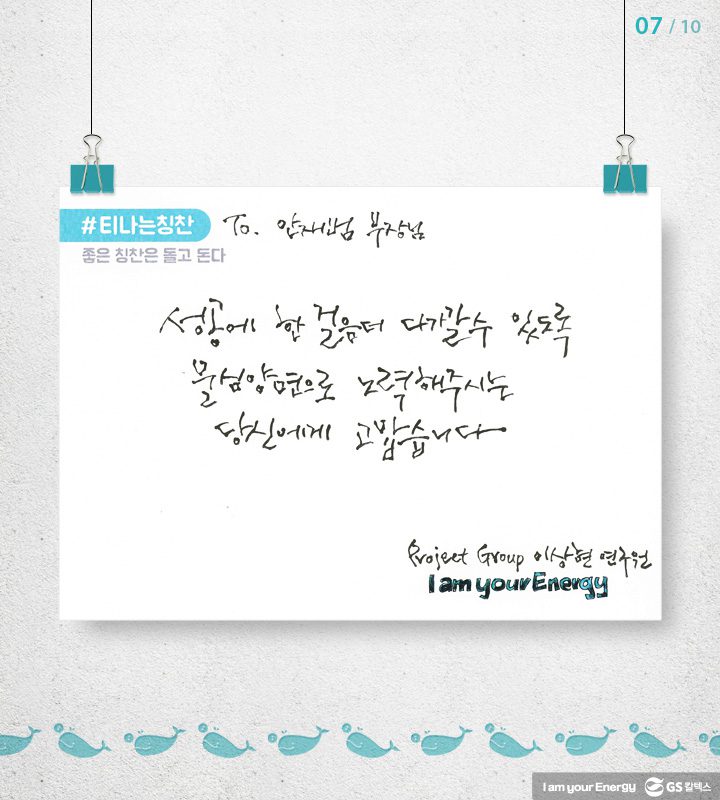 07 / 10
#티나는칭찬 To. 안재범 부장님
좋은 칭찬은 돌고 돈다
성공에 한 걸음더 다가갈수 있도록
물심양면으로 노력해주시는
당신에게 고맙습니다
Project Group 이상현 연구원
I am your Energy
I am your Energy GS칼텍스